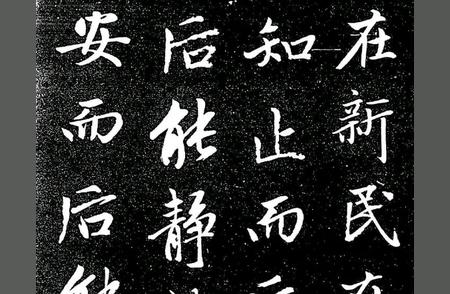 在新民在
知止而后
后能静
安而后能